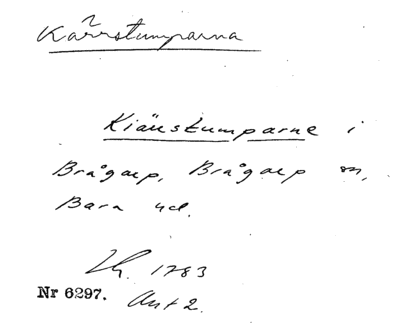 Kärrstumparna
Kiärrstumparne i
Brågarp, Brågarp sn,
Bara hd.
Lh. 1783
Nr 6297. Akt 2.